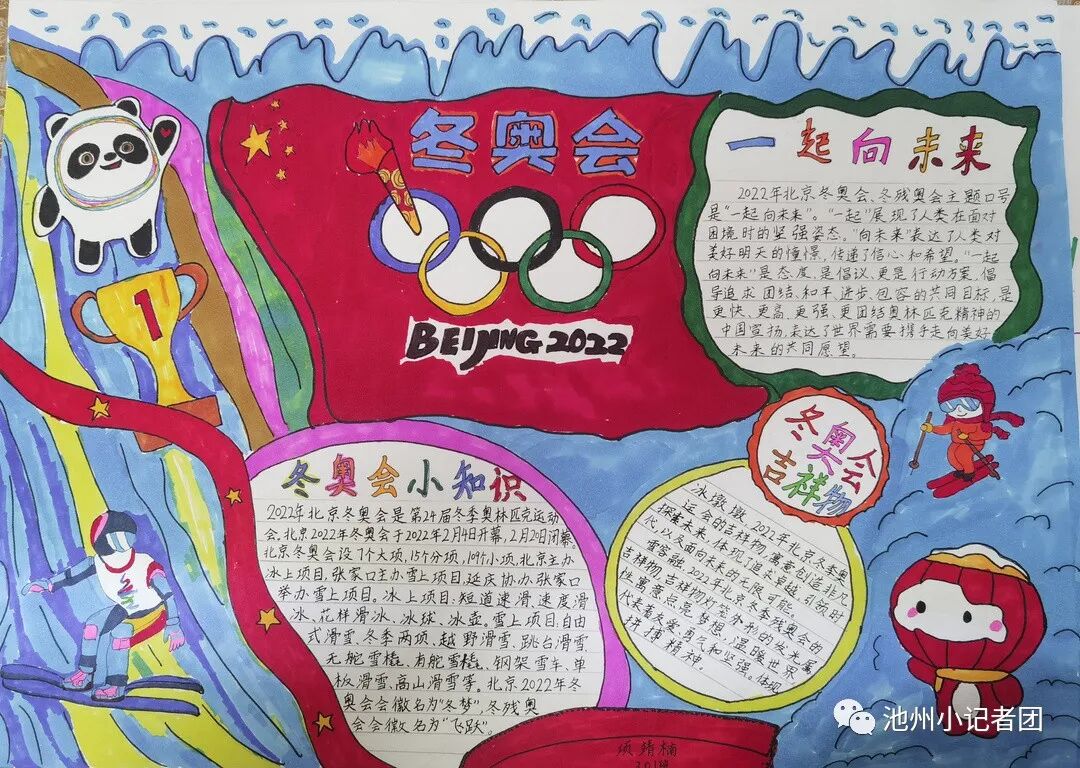 冬奥会
BEIJING 2022
一起向未来
2022年北京冬奥会、冬残奥会主题口号
是“一起向未来”。“一起”展现了人类在面对
困境时的坚强姿态。“向未来”表达了人类对
美好明天的憧憬,传递了信心和希望。“一起
向未来”是态度、是倡议、更是行动方案,倡
导追求团结、和平、进步、包容的共同目标,是
更快、更高、更强、更团结奥林匹克精神的
中国宣扬,表达了世界需要携手走向美好
未来的共同愿望。
1
冬奥会小知识
2022年北京冬奥会是第24届冬季奥林匹克运动
会,北京2022年冬奥会于2022年2月4日开幕,2月20日闭幕。
北京冬奥会设7个大项,15个分项,109个小项,北京主办
冰上项目,张家口主办雪上项目,延庆协办张家口
举办雪上项目。冰上项目,短道速滑、速度滑
冰、花样滑冰、冰球、冰壶。雪上项目,自由
式滑雪、冬季两项、越野滑雪、跳台滑雪、
无舵雪橇、有舵雪橇、钢架雪车、单
板滑雪、高山滑雪等。北京2022年冬
奥会会徽名为“冬梦”,冬残奥
会会徽名为“飞跃”。
冬奥会
吉祥物
冰墩墩,2022年北京冬季奥
运会的吉祥物,寓意创造非凡、
探索未来,体现了追求卓越,引领时
代,以及面向未来的无限可能。
雪容融,2022年北京冬季残奥会的
吉祥物,吉祥物灯笼外形的
性寓意点亮梦想,温暖世界,
代表着友爱、勇气和坚强。体现
拼搏精神。
项靖楠
301班
池州小记者团